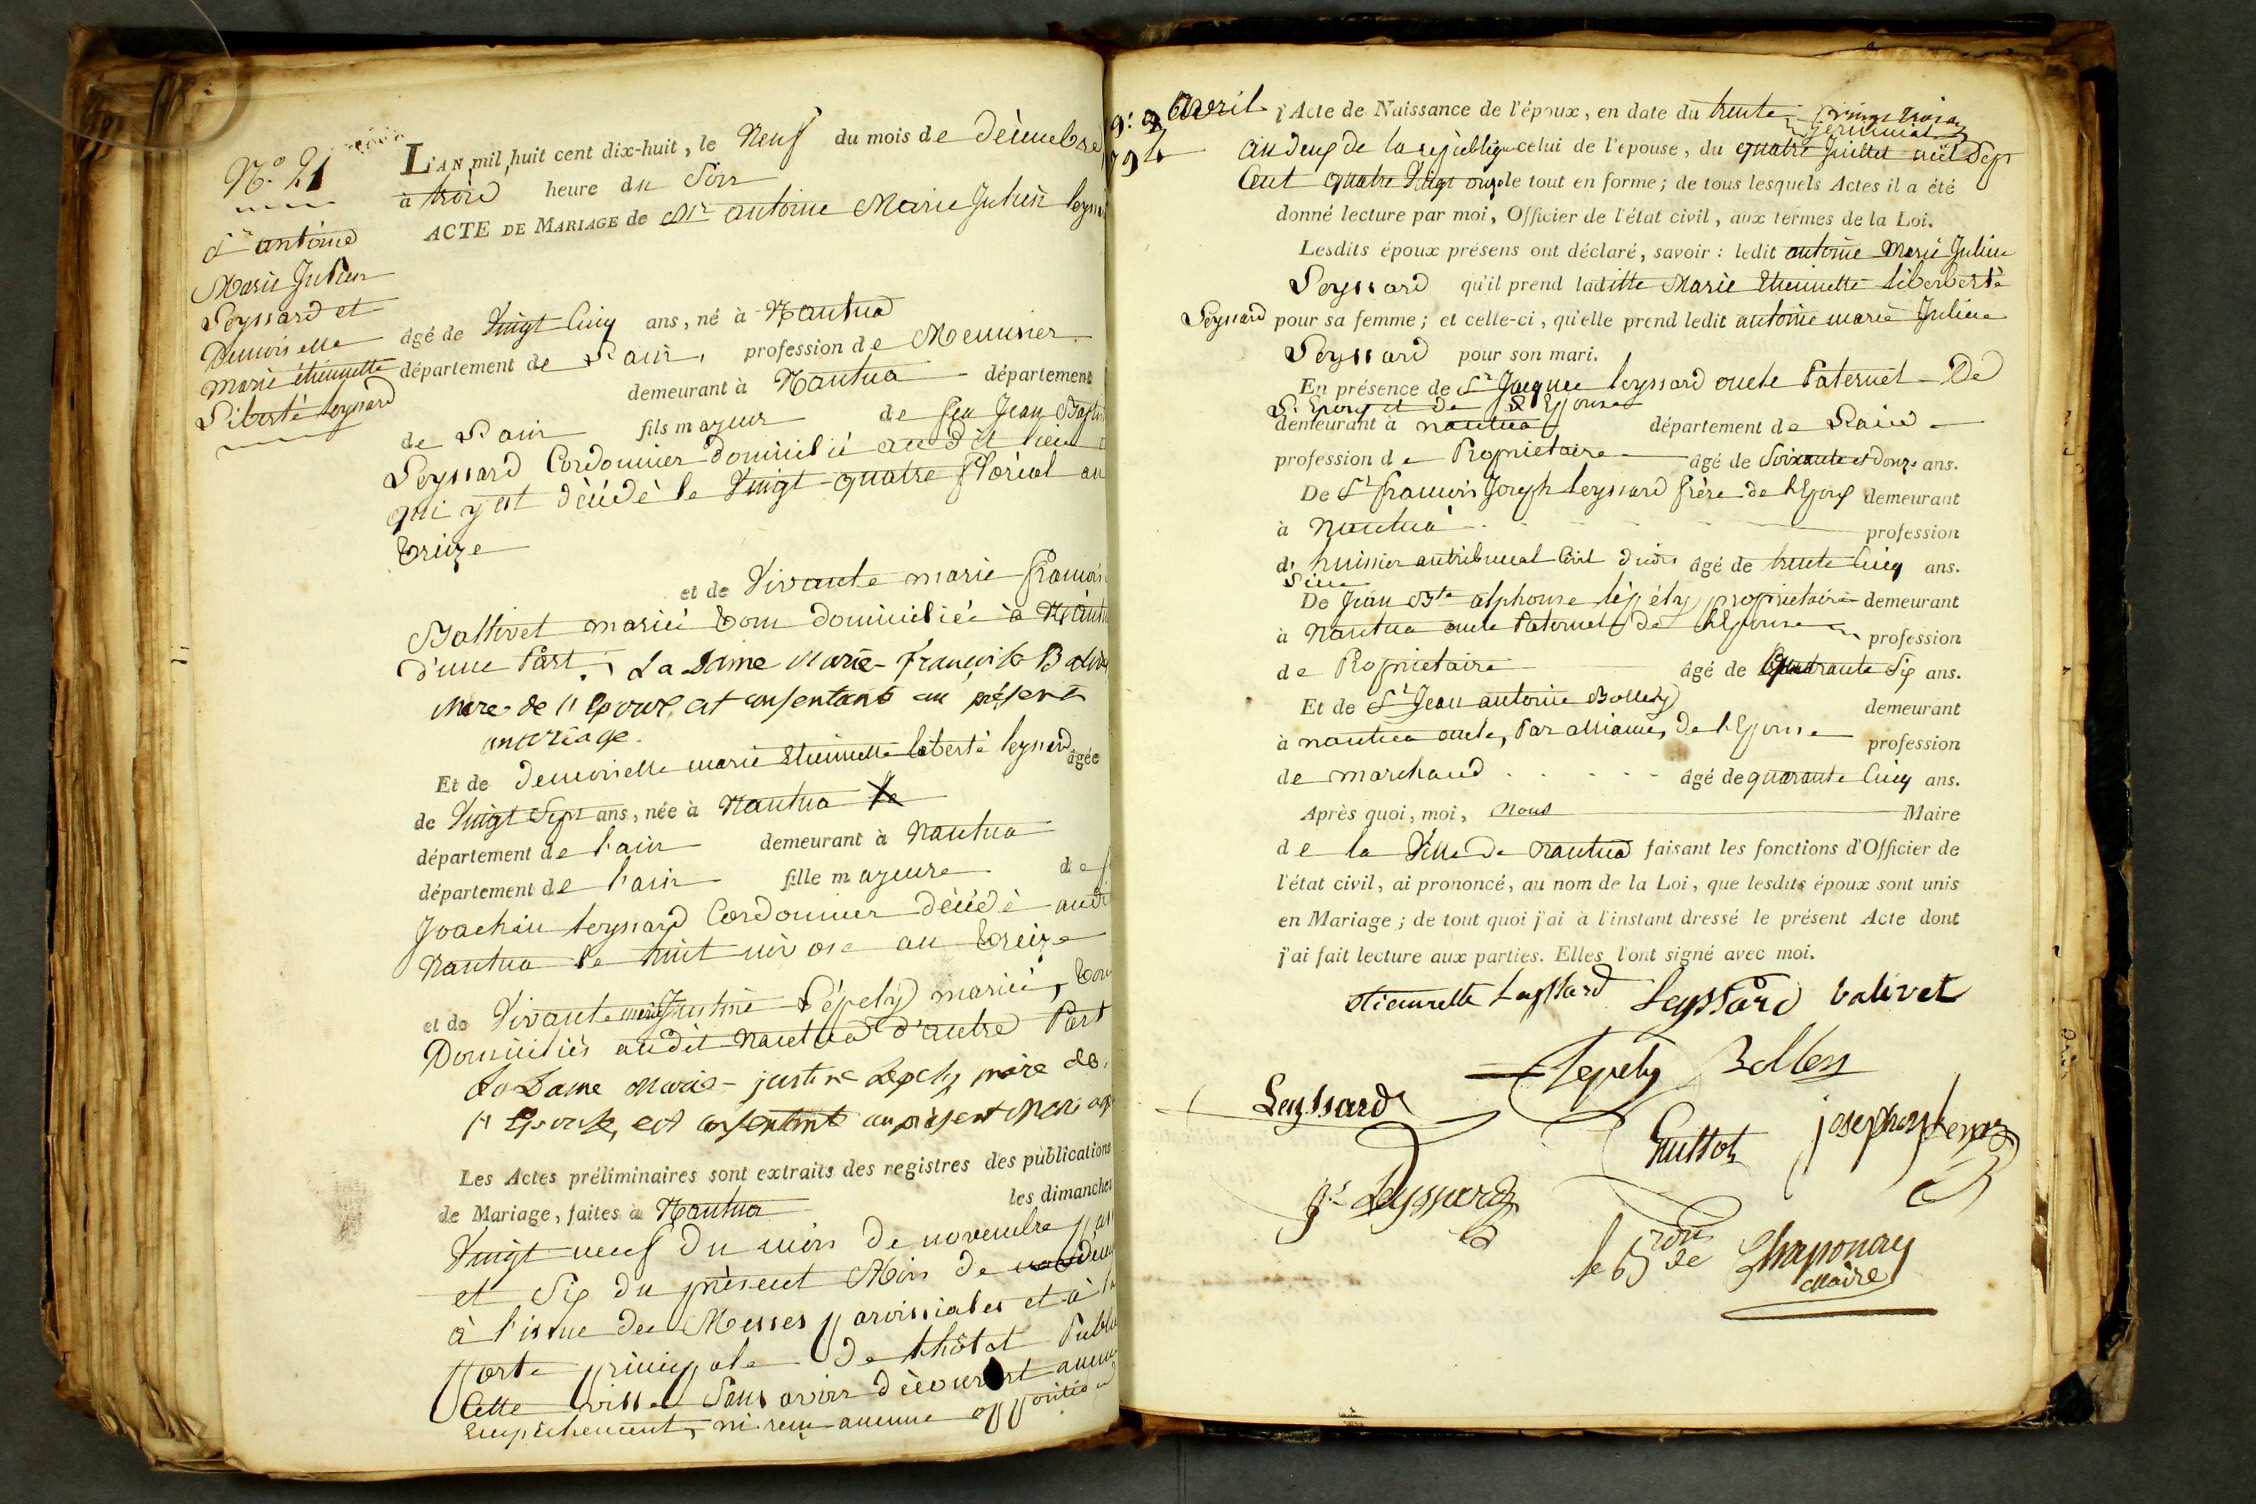 N.º 21
Sr antoine
Marie Julien
Leyssard et
Demoiselle
marie étiennette
Liberté leyssard
L'AN mil huit cent dix-huit, le Neuf du mois de décembre
à trois heure du Soir
ACTE DE MARIAGE de Mr antoine Marie Julien leyss
âgé de Vingt Cinq ans, né à Nantua
département de L'ain, profession de Menuisier
demeurant à Nantua département
de L'ain fils majeur de feu Jean Bapt
Leyssard Cordonnier domicilié audit lieu
qui y est décédé le Vingt-quatre floréal an
treize
et de Vivante marie françoise
Ballivet mariés domiciliée à Nantua
d'une Part. La Dame Marie-françoise Baliv
Mere de l'Epoux, est consentante au présent
mariage.
Et de Demoiselle marie Etiennette liberté leyssard âgée
de Vingt Sept ans, née à Nantua
département de l'ain demeurant à Nantua
département de l'ain fille majeure de f
Joachim leyssard Cordonnier décédé audit
Nantua le huit nivose an treize
et de Vivante marie Justine Lépely mariés,
Domiciliés audit Nantua d'autre Part
La Dame Marie-justine Lépely mère de
l'Epouse, est consentante au présent Mariage
Les Actes préliminaires sont extraits des registres des publications
de Mariage, faites à Nantua les dimanches
Vingt neuf du mois de novembre passé
et Six du présent Mois de décem
à l'issue des Messes paroissiales et à la
porte principale de l'hôtel Public
Cette ville Sans avoir découvert aucun
Empêchement, ni reçu aucune opposition
avril
l'Acte de Naissance de l'époux, en date du trente vingt trois
germinal
an deux de la république celui de l'épouse, du quatre Juillet mil Sept
Cent quatre Vingt onze le tout en forme; de tous lesquels Actes il a été
donné lecture par moi, Officier de l'état civil, aux termes de la Loi.
Lesdits époux présens ont déclaré, savoir: ledit antoine Marie Julien
Leyssard qu'il prend laditte Marie Etiennette liberté
Leyssard pour sa femme; et celle-ci, qu'elle prend ledit antoine marie Julien
Leyssard pour son mari.
En présence de Sr Jacques leyssard oncle Paternel De
L'Epoux et de L'Epouse
demeurant à nantua département de L'ain
profession de Propriétaire âgé de Soixante et douze ans.
De Sr françois Joseph leyssard frère de l'Epoux demeurant
à Nantua profession
d' huissier au tribunal Civil âgé de trente Cinq ans.
De Jean Bte alphonse lépély propriétaire demeurant
à Nantua oncle Paternel de l'Epouse profession
de Propriétaire âgé de Quarante Six ans.
Et de Sr Jean antoine Bolley demeurant
à nantua oncle, Par alliance, de l'Epouse profession
de marchand âgé de quarante Cinq ans.
Après quoi, moi, Nous Maire
de la Ville de Nantua faisant les fonctions d'Officier de
l'état civil, ai prononcé, au nom de la Loi, que lesdits époux sont unis
en Mariage; de tout quoi j'ai à l'instant dressé le présent Acte dont
j'ai fait lecture aux parties. Elles l'ont signé avec moi.
Etiennette Leyssard Leyssard balivet
Lepely Bolley
Leyssard
Guttot
Leyssard
le Bon de Chaponay
Maire